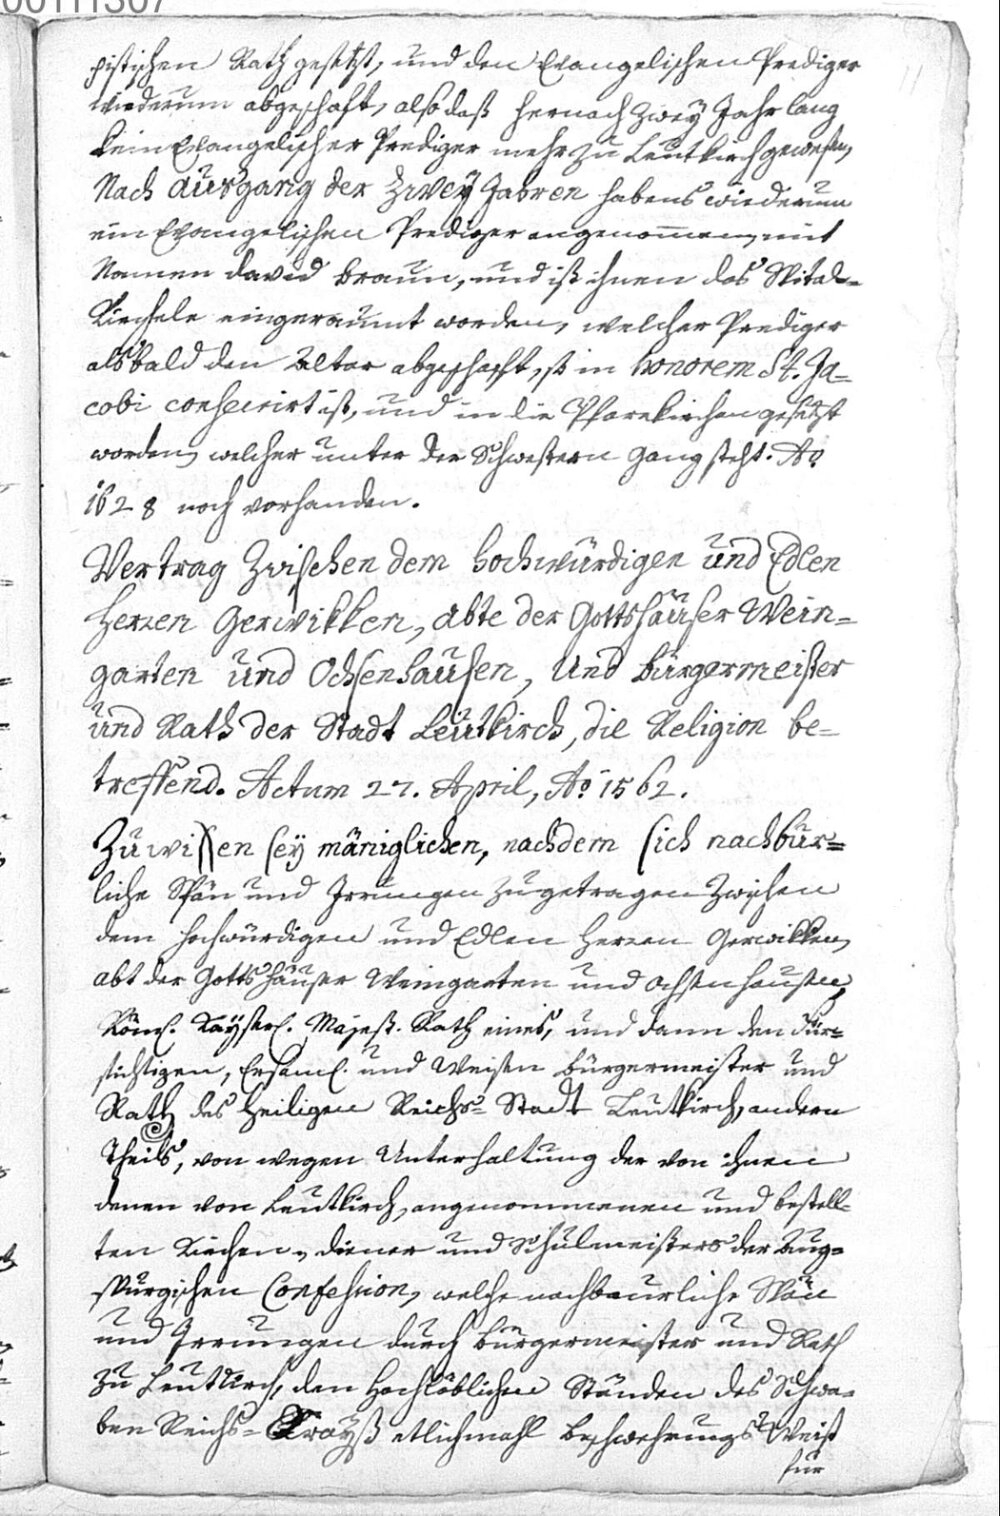 00111307
11
pistischen Rath gesetzt, und den Evangelischen Prediger
wiederum abgeschaft, also daß hernach zwey Jahr lang
kein Evangelischer Prediger mehr zu Leütkirch gewesen,
Nach ausgang der zwey Jahren habens wiederum
ein Evangelischen Prediger angenommen, mit
Namen David Braun, und ist ihnen das Spital-
Kirchele eingeraumt worden, welcher Prediger
alsbald den Altar abgeschafft, so in honorem St. Ja-
cobi consecrirt ist, und in die Pfarrkirchen gesetzt
worden, welcher unter der Schwestern Gang steht. Ao
1628 noch vorhanden.
Vertrag zwischen dem hochwürdigen und Edlen
Herren Gerwikken, Abte der Gottshäuser Wein-
garten und Ochsenhausen, und Bürgermeister
und Rath der Stadt Leütkirch, die Religion be-
treffend. Actum 27. April, Ao 1562.
Zu wissen sey mäniglichen, nachdem sich nachbür-
liche Spän und Irrungen zugetragen zwischen
dem hochwürdigen und Edlen Herren Gerwikken,
abt der Gottshäuser Weingarten und Ochsenhausen,
Röml. Kayserl. Majest. Rath eines, und dann den Für-
sichtigen, Ersaml. und Weisen Bürgermeister und
Rath des Heiligen Reichs-Stadt Leutkirch, andern
Theils, von wegen Unterhaltung der von ihnen
denen von Leutkirch, angenommenen und bestell-
ten Kirchen-diener und Schulmeisters der Aug-
spurgischen Confession, welche nachbaurliche Spän
und Irrungen durch Bürgermeister und Rath
zu Leutkirch, den Hochlöblichen Ständen des Schwa-
ben Reichs-Krayß etlichmahl beschwehrungs Weiß
für